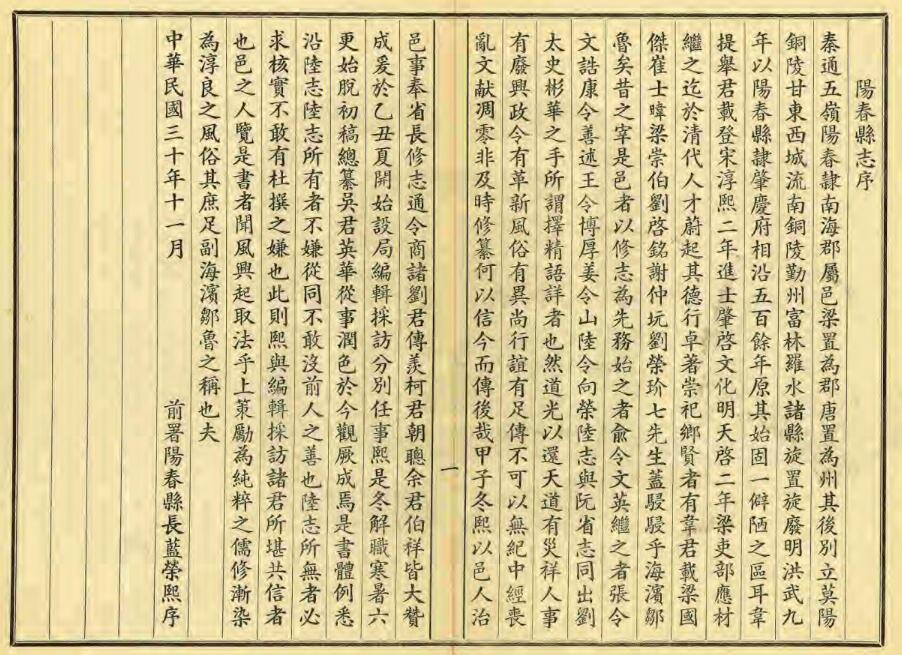 陽春縣志序
秦通五嶺陽春隸南海郡屬邑梁置為郡唐置為州其後別立莫陽
銅陵甘東西城流南銅陵勤州富林羅水諸縣旋置旋廢明洪武九
年以陽春縣隸肇慶府相沿五百餘年原其始固一僻陋之區耳韋
提舉君載登宋淳熙二年進士肇啓文化明天啓二年梁吏部應材
繼之迄於清代人才蔚起其德行卓著崇祀鄉賢者有韋君載梁國
傑崔士暐梁崇伯劉啓銘謝仲坃劉榮玠七先生蓋駸駸乎海濱鄒
魯矣昔之宰是邑者以修志為先務始之者俞令文英繼之者張令
文誥康令善述王令博厚姜令山陸令向榮陸志與阮省志同出劉
太史彬華之手所謂擇精語詳者也然道光以還天道有災祥人事
有廢興政令有革新風俗有異尚行誼有足傳不可以無紀中經喪
亂文献凋零非及時修纂何以信今而傳後哉甲子冬熙以邑人治
一
邑事奉省長修志通令商諸劉君傳羨柯君朝聰余君伯祥皆大贊
成爰於乙丑夏開始設局編輯採訪分別任事熙是冬解職寒暑六
更始脱初稿總纂吳君英華從事潤色於今觀厥成焉是書體例悉
沿陸志陸志所有者不嫌從同不敢沒前人之善也陸志所無者必
求核實不敢有杜撰之嫌也此則熙與編輯採訪諸君所堪共信者
也邑之人覽是書者聞風興起取法乎上策勵為純粹之儒修漸染
為淳良之風俗其庶足副海濱鄒魯之稱也夫
中華民國三十年十一月
前署陽春縣長藍榮熙序